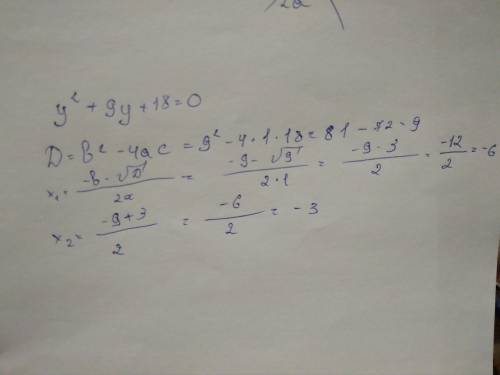 2a
y² + 9y + 18 = 0
D = b² - 4ac = 9² - 4·1·18 = 81 - 72 = 9
x₁ = (-b - √D)/(2a) = (-9 - √9)/(2·1) = (-9 - 3)/2 = -12/2 = -6
x₂ = (-9 + 3)/2 = -6/2 = -3